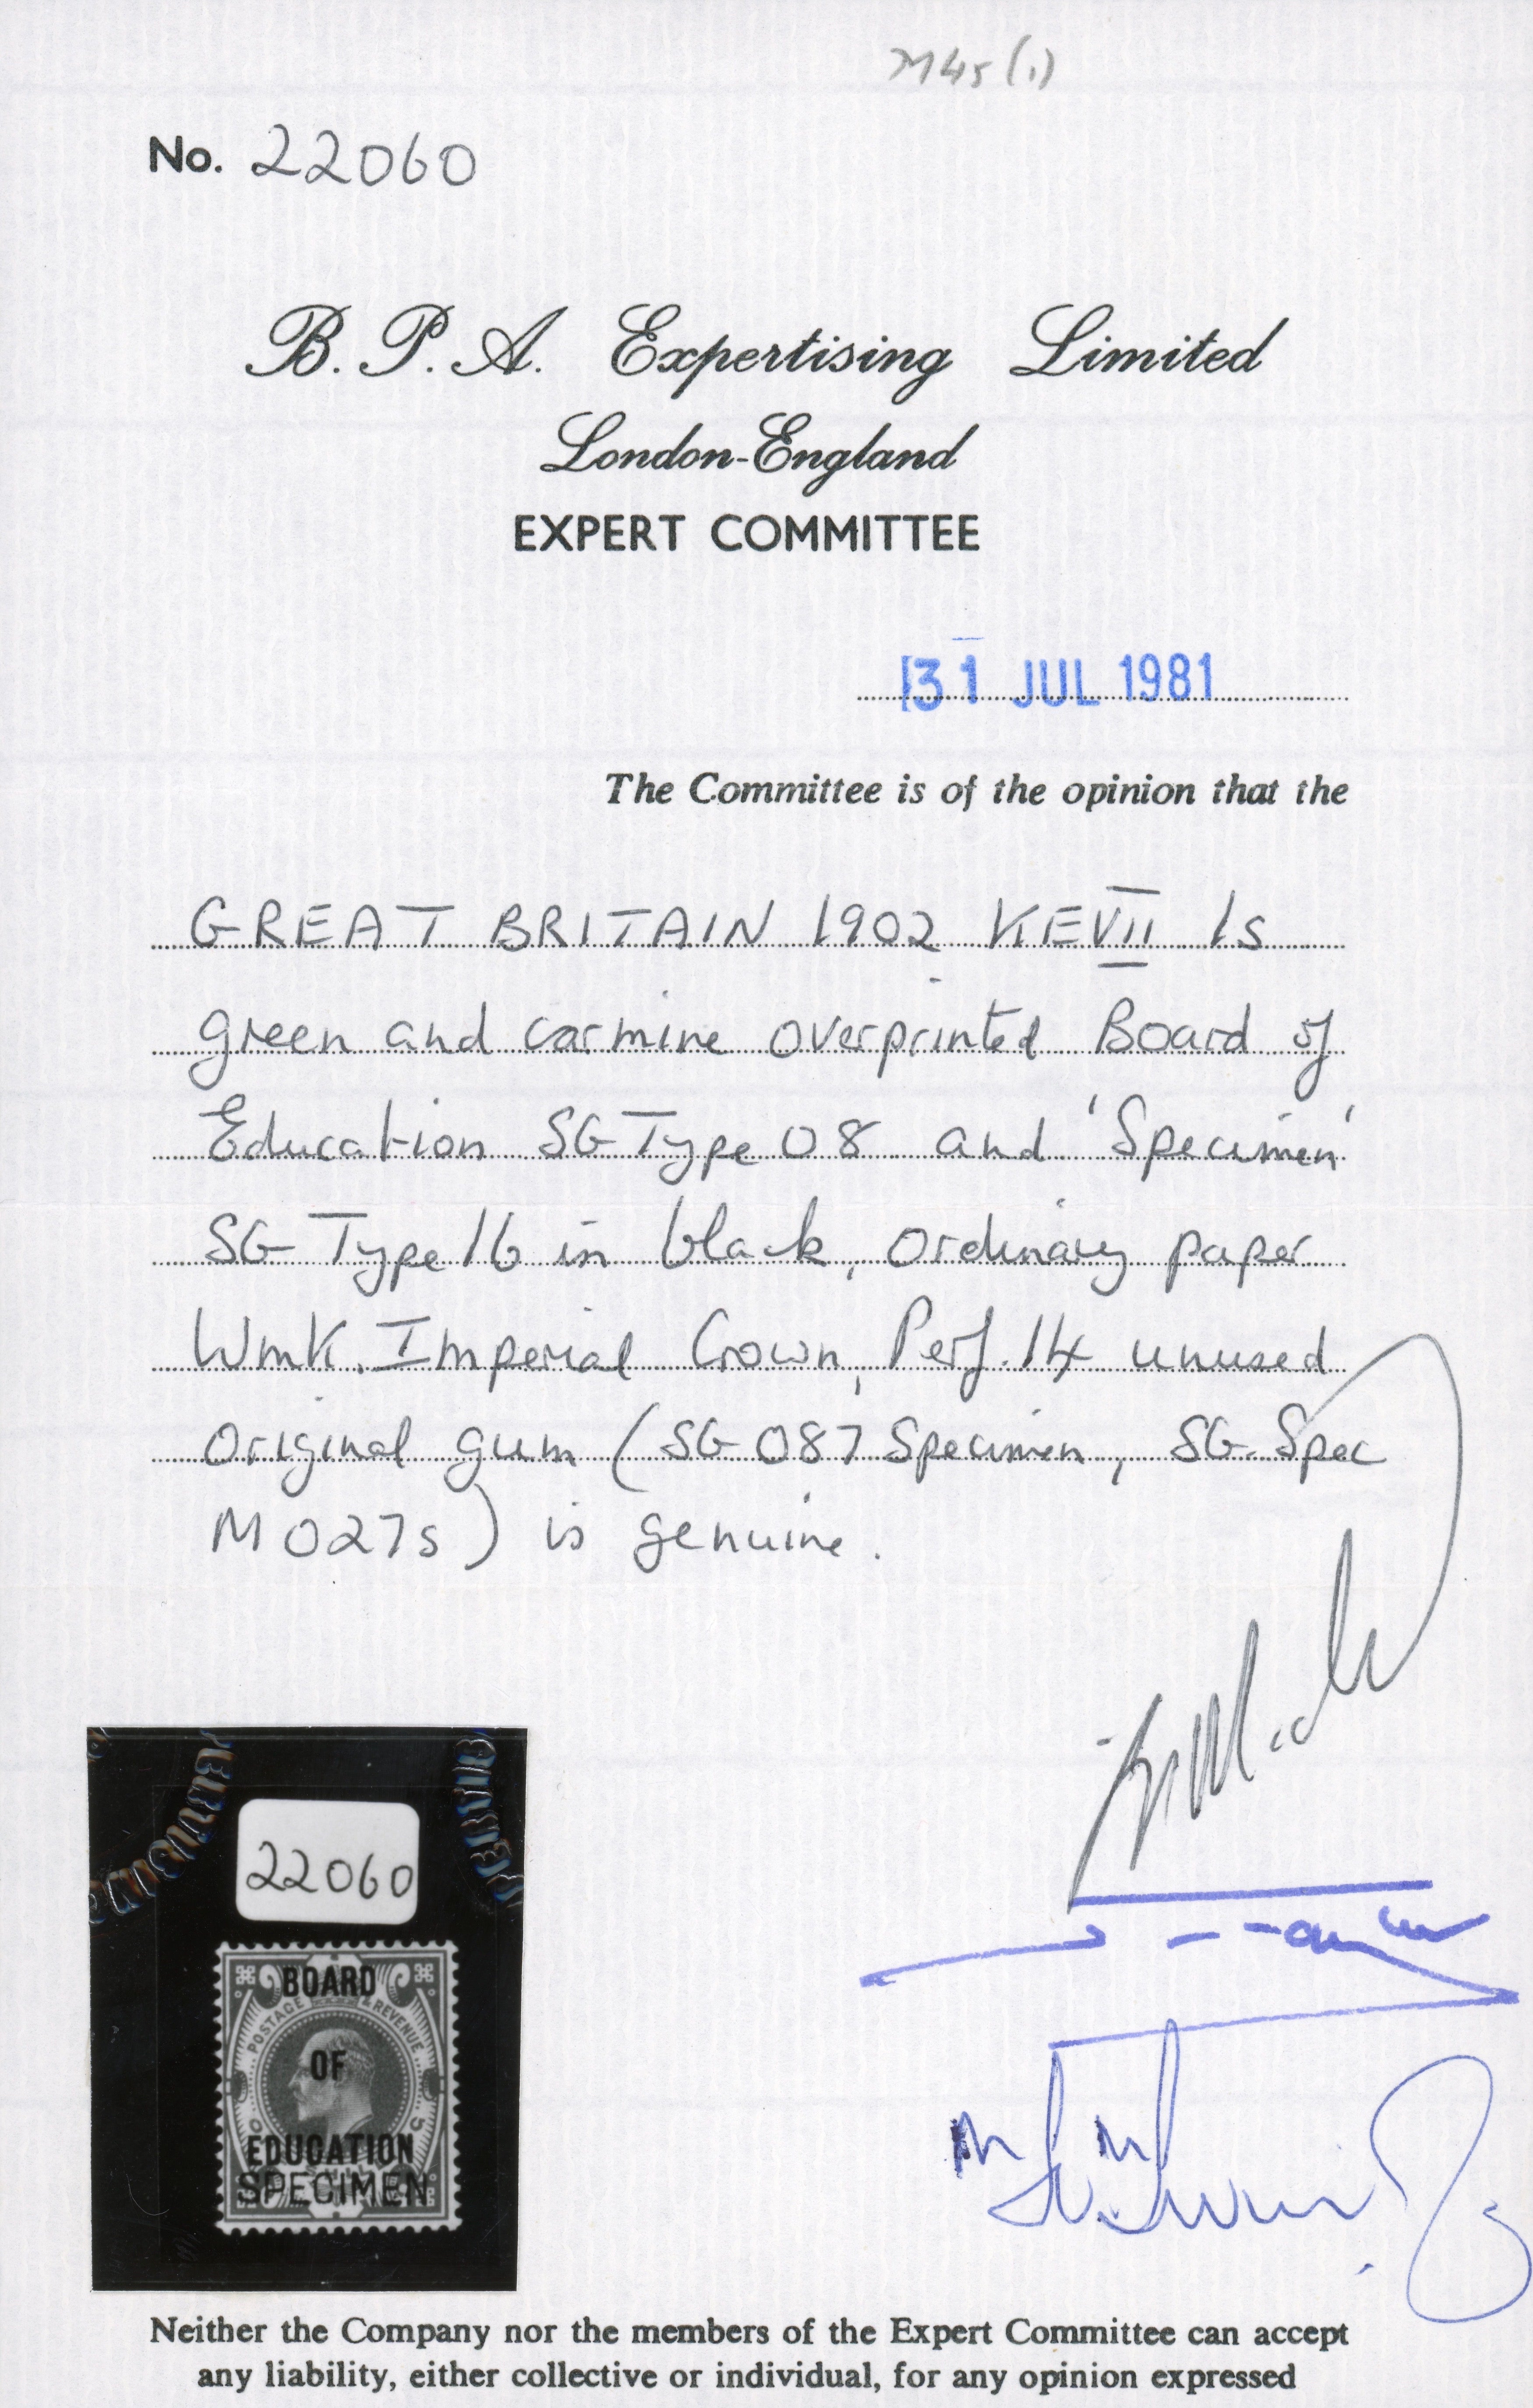 M45 (1)
No. 22060
B. P. A. Expertising Limited
London-England
EXPERT COMMITTEE
31 JUL 1981
The Committee is of the opinion that the
GREAT BRITAIN 1902 KEVII 1s
green and carmine overprinted Board of
Education SG Type O8 and 'Specimen'
SG Type 16 in black, ordinary paper
Wmk. Imperial Crown, Perf. 14 unused
original gum (SG O87 Specimen, SG. Spec
MO27s) is genuine.
22060
BOARD
POSTAGE & REVENUE
OF
EDUCATION
SPECIMEN
Neither the Company nor the members of the Expert Committee can accept
any liability, either collective or individual, for any opinion expressed